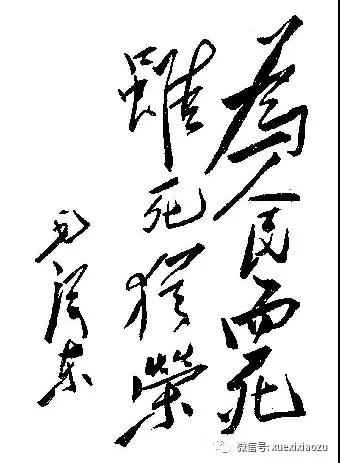 為人民而死
雖死猶榮
毛澤东
微信号: xuexixiaozu